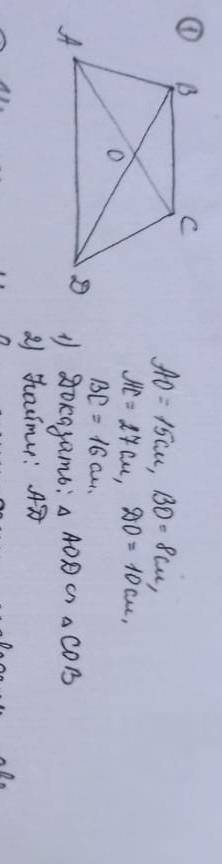 ①
A
B
O
C
D
AO = 15 см, BO = 8 см,
AC = 27 см, DO = 10 см,
BC = 16 см.
1) Доказать: △ AOD ∽ △ COB
2) Найти: AD